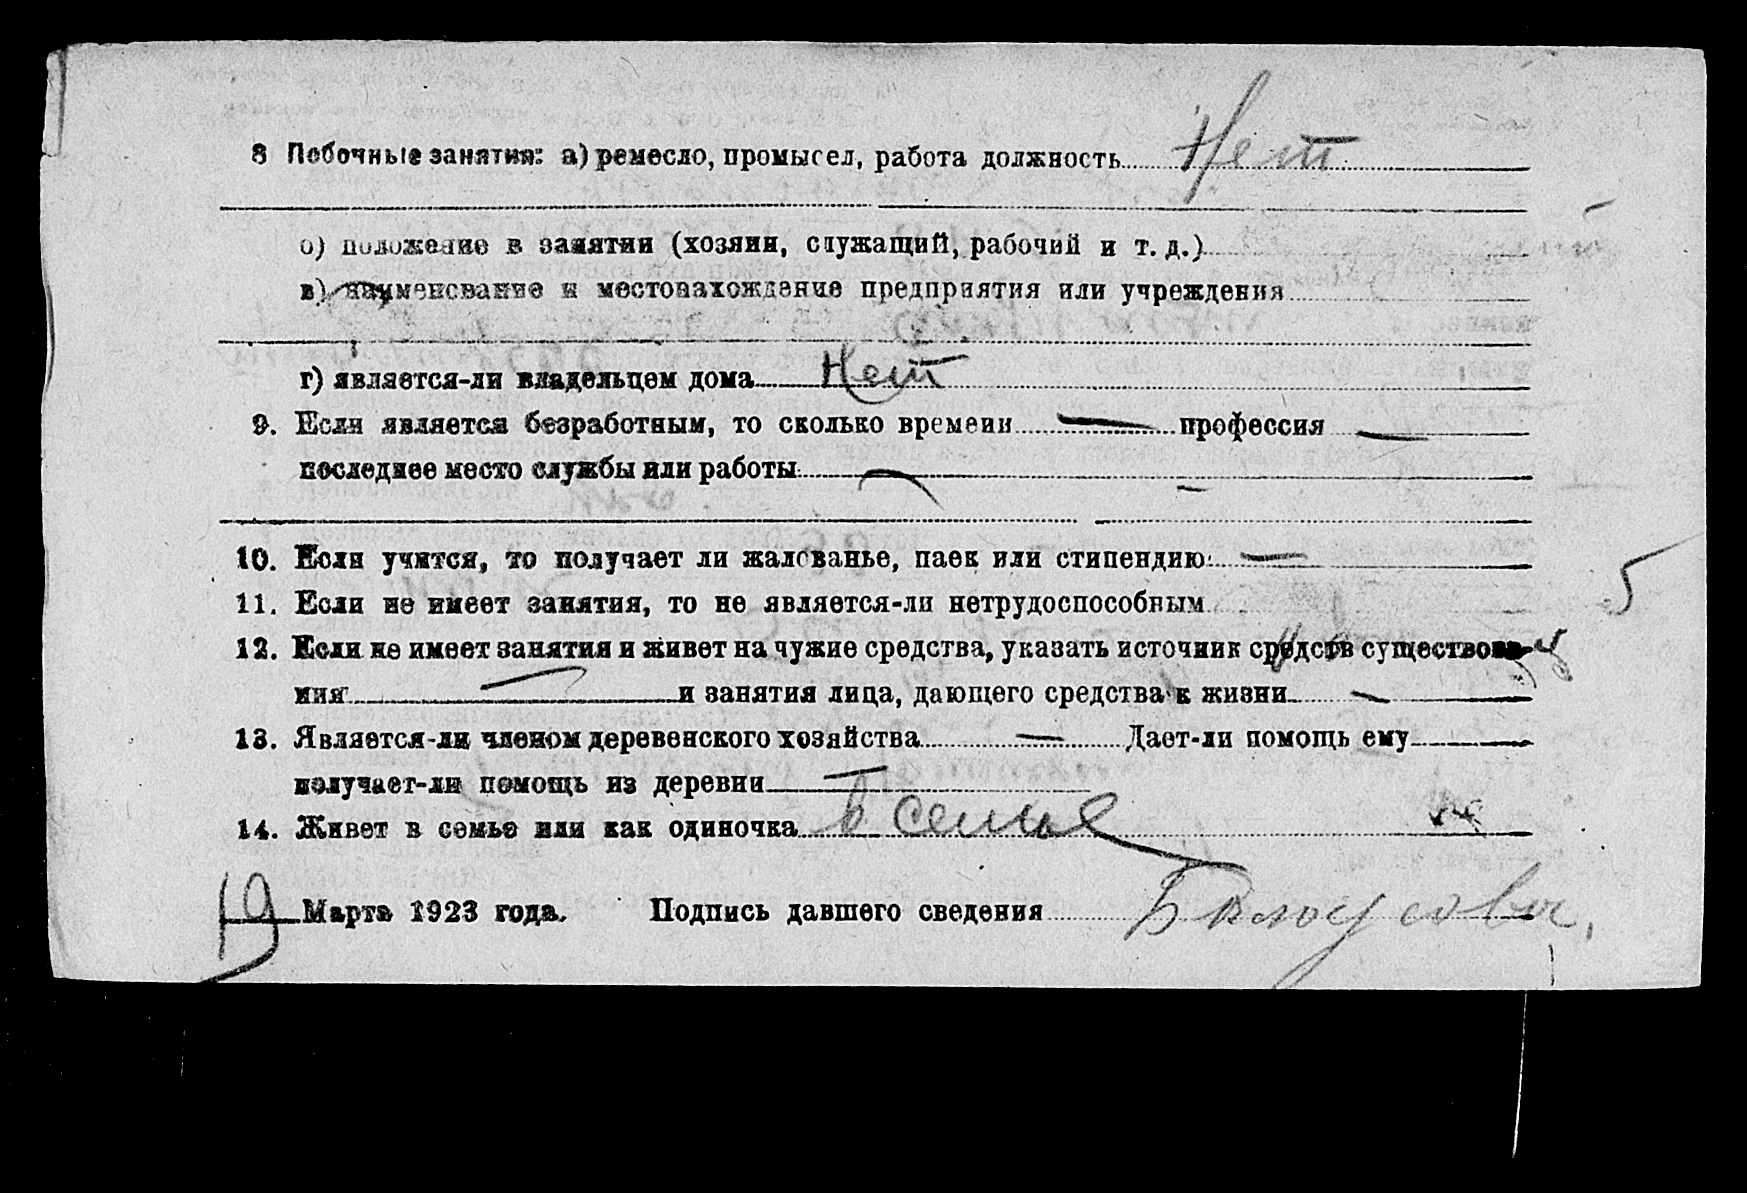 8 Побочные занятия: а) ремесло, промысел, работа должность Нет
б) положение в занятии (хозяин, служащий, рабочий и т. д.)
в) наименование и местонахождение предприятия или учреждения
г) является-ли владельцем дома Нет
9. Если является безработным, то сколько времени — профессия —
последнее место службы или работы —
10. Если учится, то получает ли жалованье, паек или стипендию: —
11. Если не имеет занятия, то не является-ли нетрудоспособным 5
12. Если не имеет занятия и живет на чужие средства, указать источник средств существова-
ния — и занятия лица, дающего средства к жизни —
13. Является-ли членом деревенского хозяйства — Дает-ли помощь ему
получает-ли помощь из деревни —
14. Живет в семье или как одиночка в семье
19 Марта 1923 года. Подпись давшего сведения Белоусова